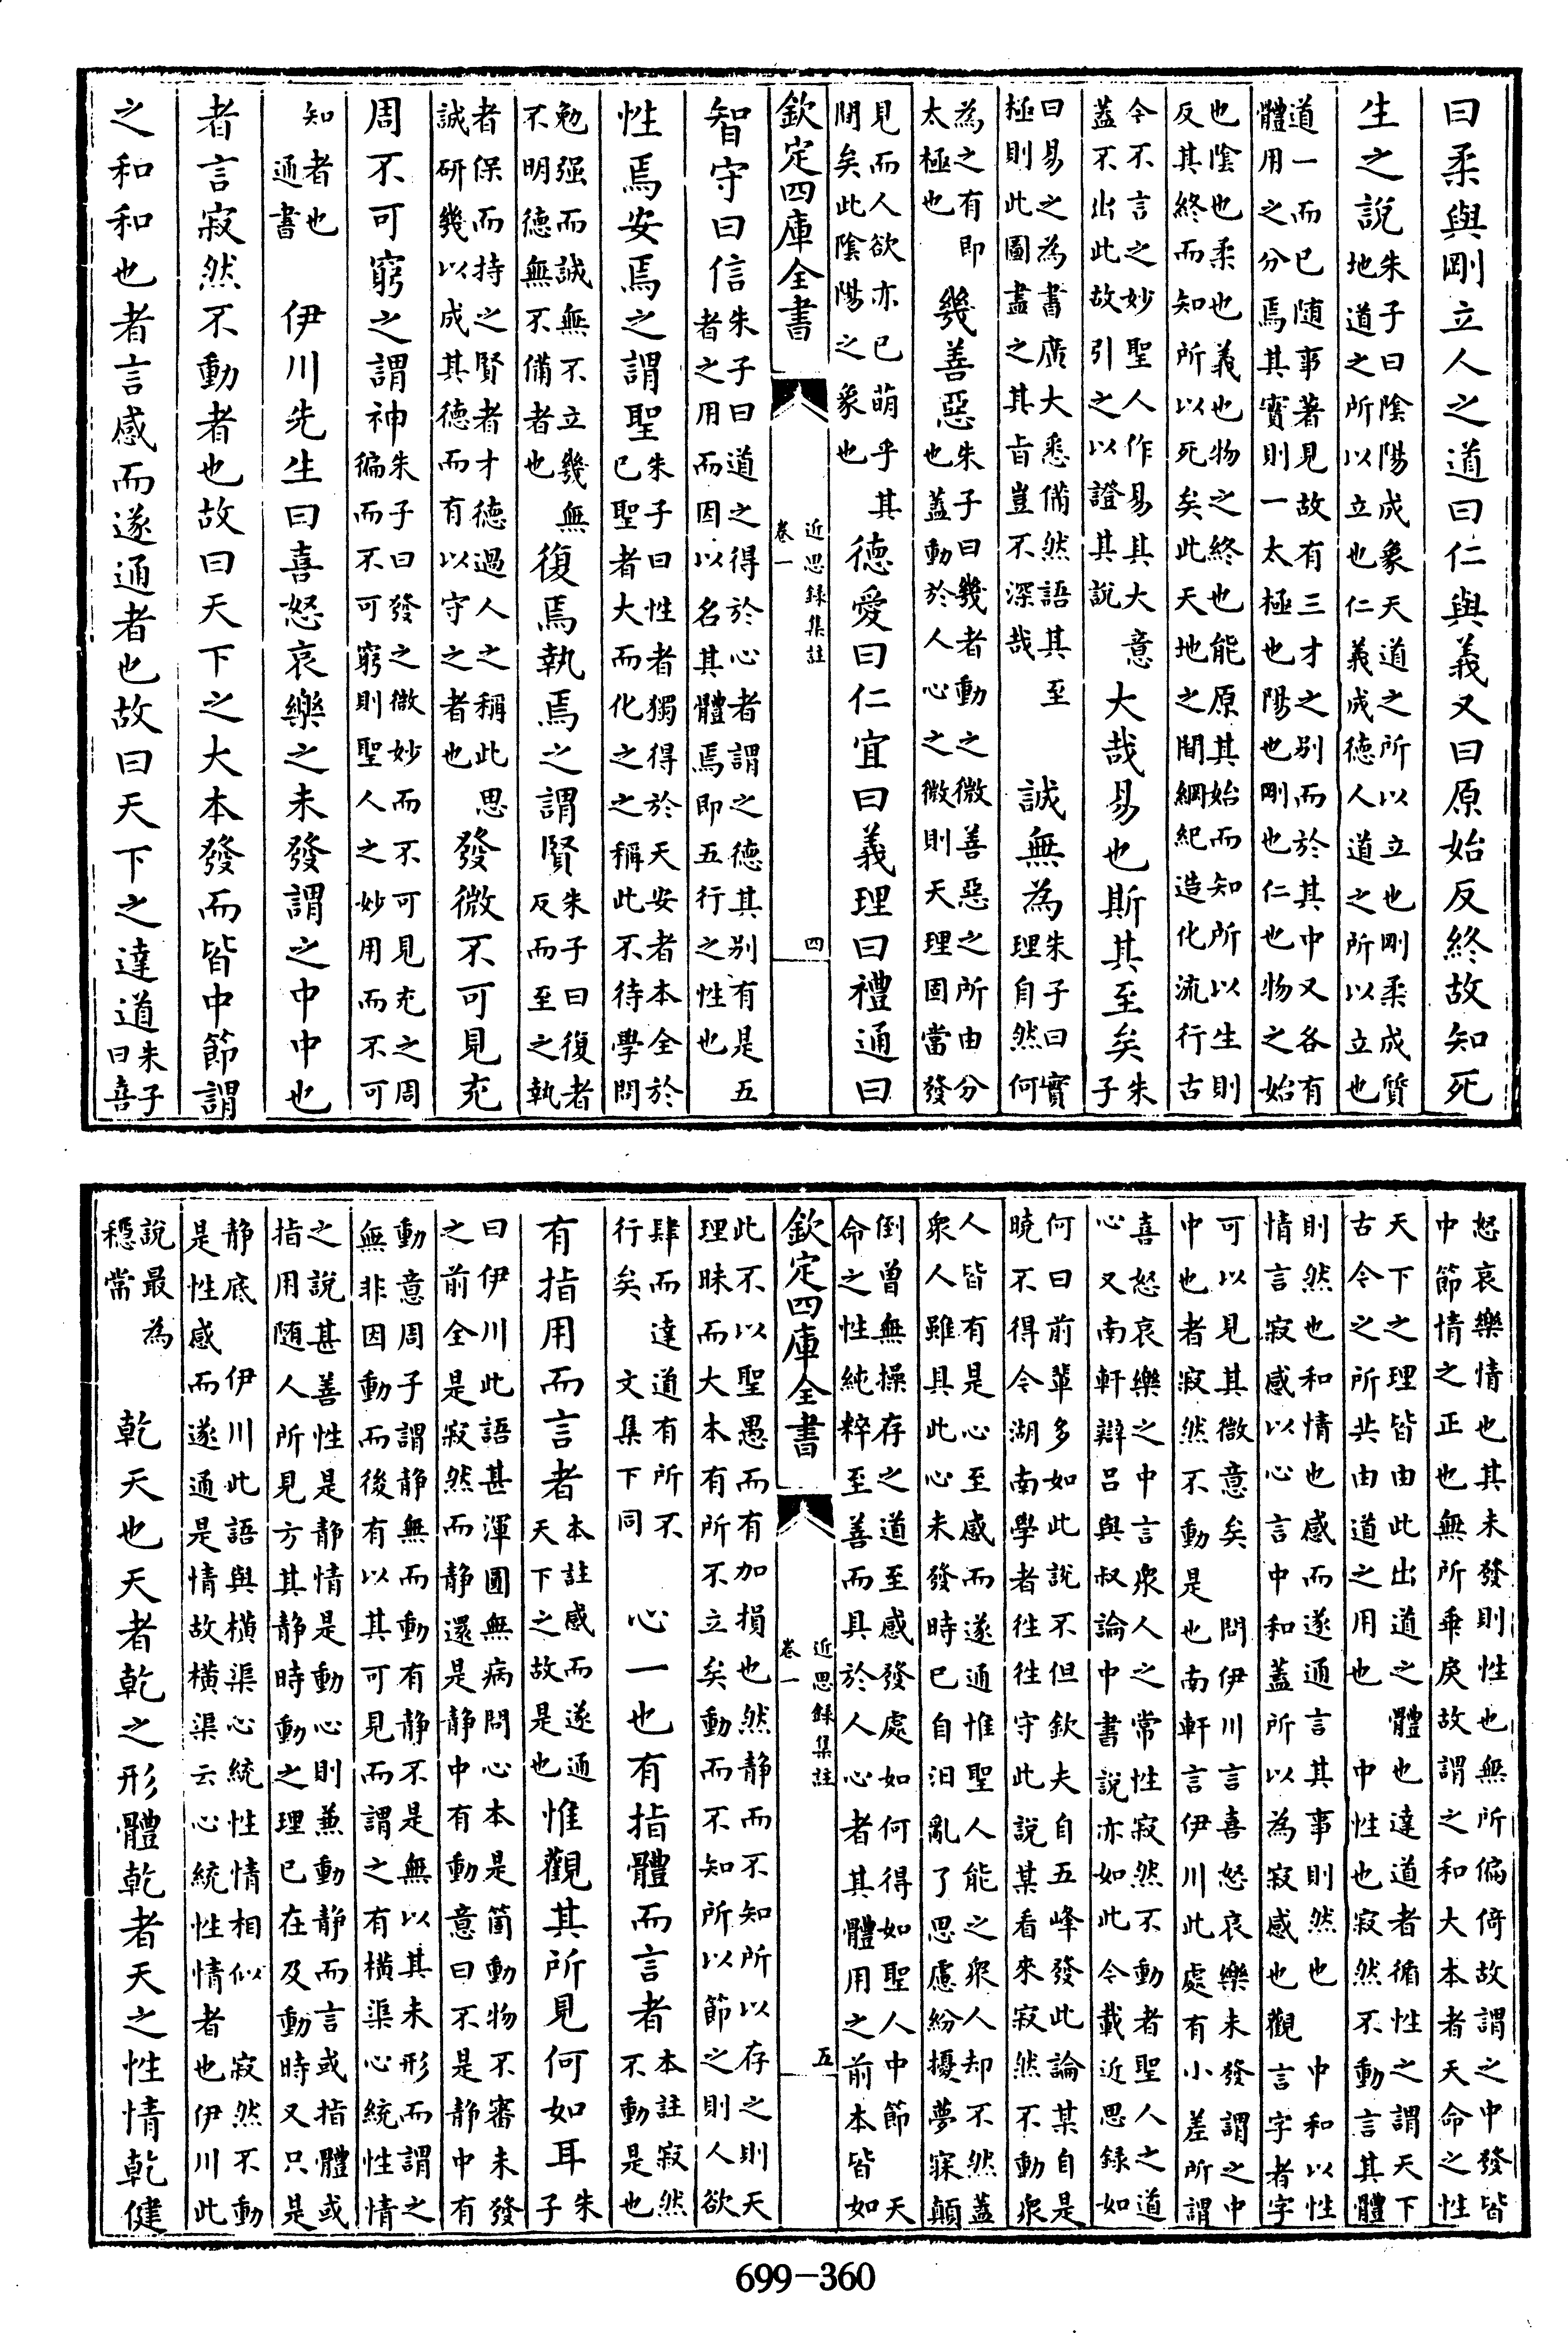 曰柔與剛立人之道曰仁與義又曰原始反終故知死
生之說朱子曰陰陽成象天道之所以立也剛柔成質地道之所以立也仁義成德人道之所以立也
道一而已随事著見故有三才之别而於其中又各有體用之分焉其實則一太極也陽也剛也仁也物之始
也陰也柔也義也物之終也能原其始而知所以生則反其終而知所以死矣此天地之間綱紀造化流行古
今不言之妙聖人作易其大意蓋不出此故引之以證其說大哉易也斯其至矣朱子
曰易之為書廣大悉備然語其至極則此圖盡之其旨豈不深哉 誠無為朱子曰實理自然何
為之有即太極也幾善惡朱子曰幾者動之微善惡之所由分也蓋動於人心之微則天理固當發
見而人欲亦已萌乎其間矣此陰陽之象也德愛曰仁宜曰義理曰禮通曰
欽定四庫全書 近思録集註 卷一 四
智守曰信朱子曰道之得於心者謂之德其别有是五者之用而因以名其體焉即五行之性也
性焉安焉之謂聖朱子曰性者獨得於天安者本全於已聖者大而化之之稱此不待學問
勉强而誠無不立幾無不明德無不備者也復焉執焉之謂賢朱子曰復者反而至之執
者保而持之賢者才德過人之稱此思誠研幾以成其德而有以守之者也發微不可見充
周不可窮之謂神朱子曰發之微妙而不可見充之周徧而不可窮則聖人之妙用而不可
知者也通書 伊川先生曰喜怒哀樂之未發謂之中中也
者言寂然不動者也故曰天下之大本發而皆中節謂
之和和也者言感而遂通者也故曰天下之達道朱子曰喜
怒哀樂情也其未發則性也無所偏倚故謂之中發皆中節情之正也無所乖戾故謂之和大本者天命之性
天下之理皆由此出道之體也達道者循性之謂天下古今之所共由道之用也 中性也寂然不動言其體
則然也和情也感而遂通言其事則然也 中和以性情言寂感以心言中和蓋所以為寂感也觀言字者字
可以見其微意矣 問伊川言喜怒哀樂未發謂之中中也者寂然不動是也南軒言伊川此處有小差所謂
喜怒哀樂之中言衆人之常性寂然不動者聖人之道心又南軒辯呂與叔論中書說亦如此今載近思録如
何曰前輩多如此說不但欽夫自五峰發此論某自是曉不得今湖南學者往往守此說某看來寂然不動衆
人皆有是心至感而遂通惟聖人能之衆人却不然蓋衆人雖具此心未發時已自汨亂了思慮紛擾夢寐顛
倒曾無操存之道至感發處如何得如聖人中節 天命之性純粹至善而具於人心者其體用之前本皆如
欽定四庫全書 近思録集註 卷一 五
此不以聖愚而有加損也然静而不知所以存之則天理昧而大本有所不立矣動而不知所以節之則人欲
肆而達道有所不行矣 文集下同 心一也有指體而言者本註寂然不動是也
有指用而言者本註感而遂通天下之故是也惟觀其所見何如耳朱子
曰伊川此語甚渾圓無病問心本是箇動物不審未發之前全是寂然而静還是静中有動意曰不是静中有
動意周子謂静無而動有静不是無以其未形而謂之無非因動而後有以其可見而謂之有横渠心統性情
之說甚善性是静情是動心則兼動静而言或指體或指用随人所見方其静時動之理已在及動時又只是
静底 伊川此語與横渠心統性情相似 寂然不動是性感而遂通是情故横渠云心統性情者也伊川此
說最為穩當 乾天也天者乾之形體乾者天之性情乾健
699-360